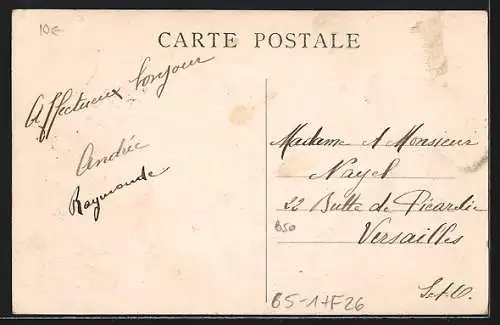 10€
CARTE POSTALE
Affectueux bonjour
Andrée
Raymonde
Madame & Monsieur
Nayel
22 Butte de Picardie
B50
Versailles
S-&-O.
B5-1+F26